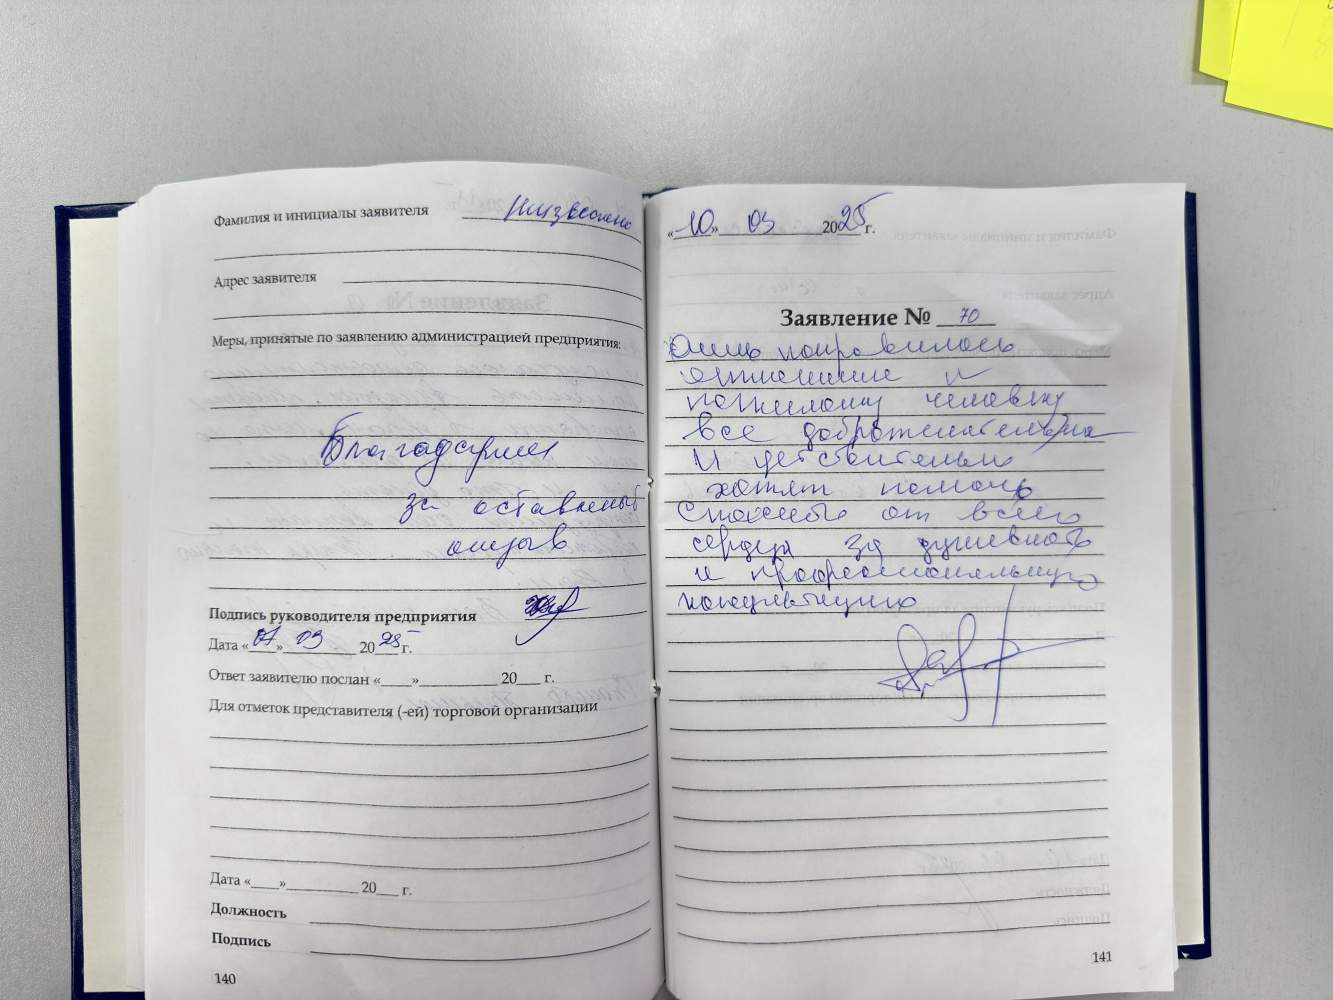 Фамилия и инициалы заявителя
Адрес заявителя
Меры, принятые по заявлению администрацией предприятия:
Благадарим
за оставленый
отзыв
Подпись руководителя предприятия
Дата «07» 03 2025 г.
Ответ заявителю послан «____»__________ 20___ г.
Для отметок представителя (-ей) торговой организации
Дата «____»__________ 20___ г.
Должность
Подпись
140
«10» 03 2025 г.
Заявление № 70
Очень понравилось
отношение к
пожилому человеку
все доброжелательны
И действительно
хотят помочь
Спасибо от всего
сердца за душевность
и профессиональную
консультацию
141